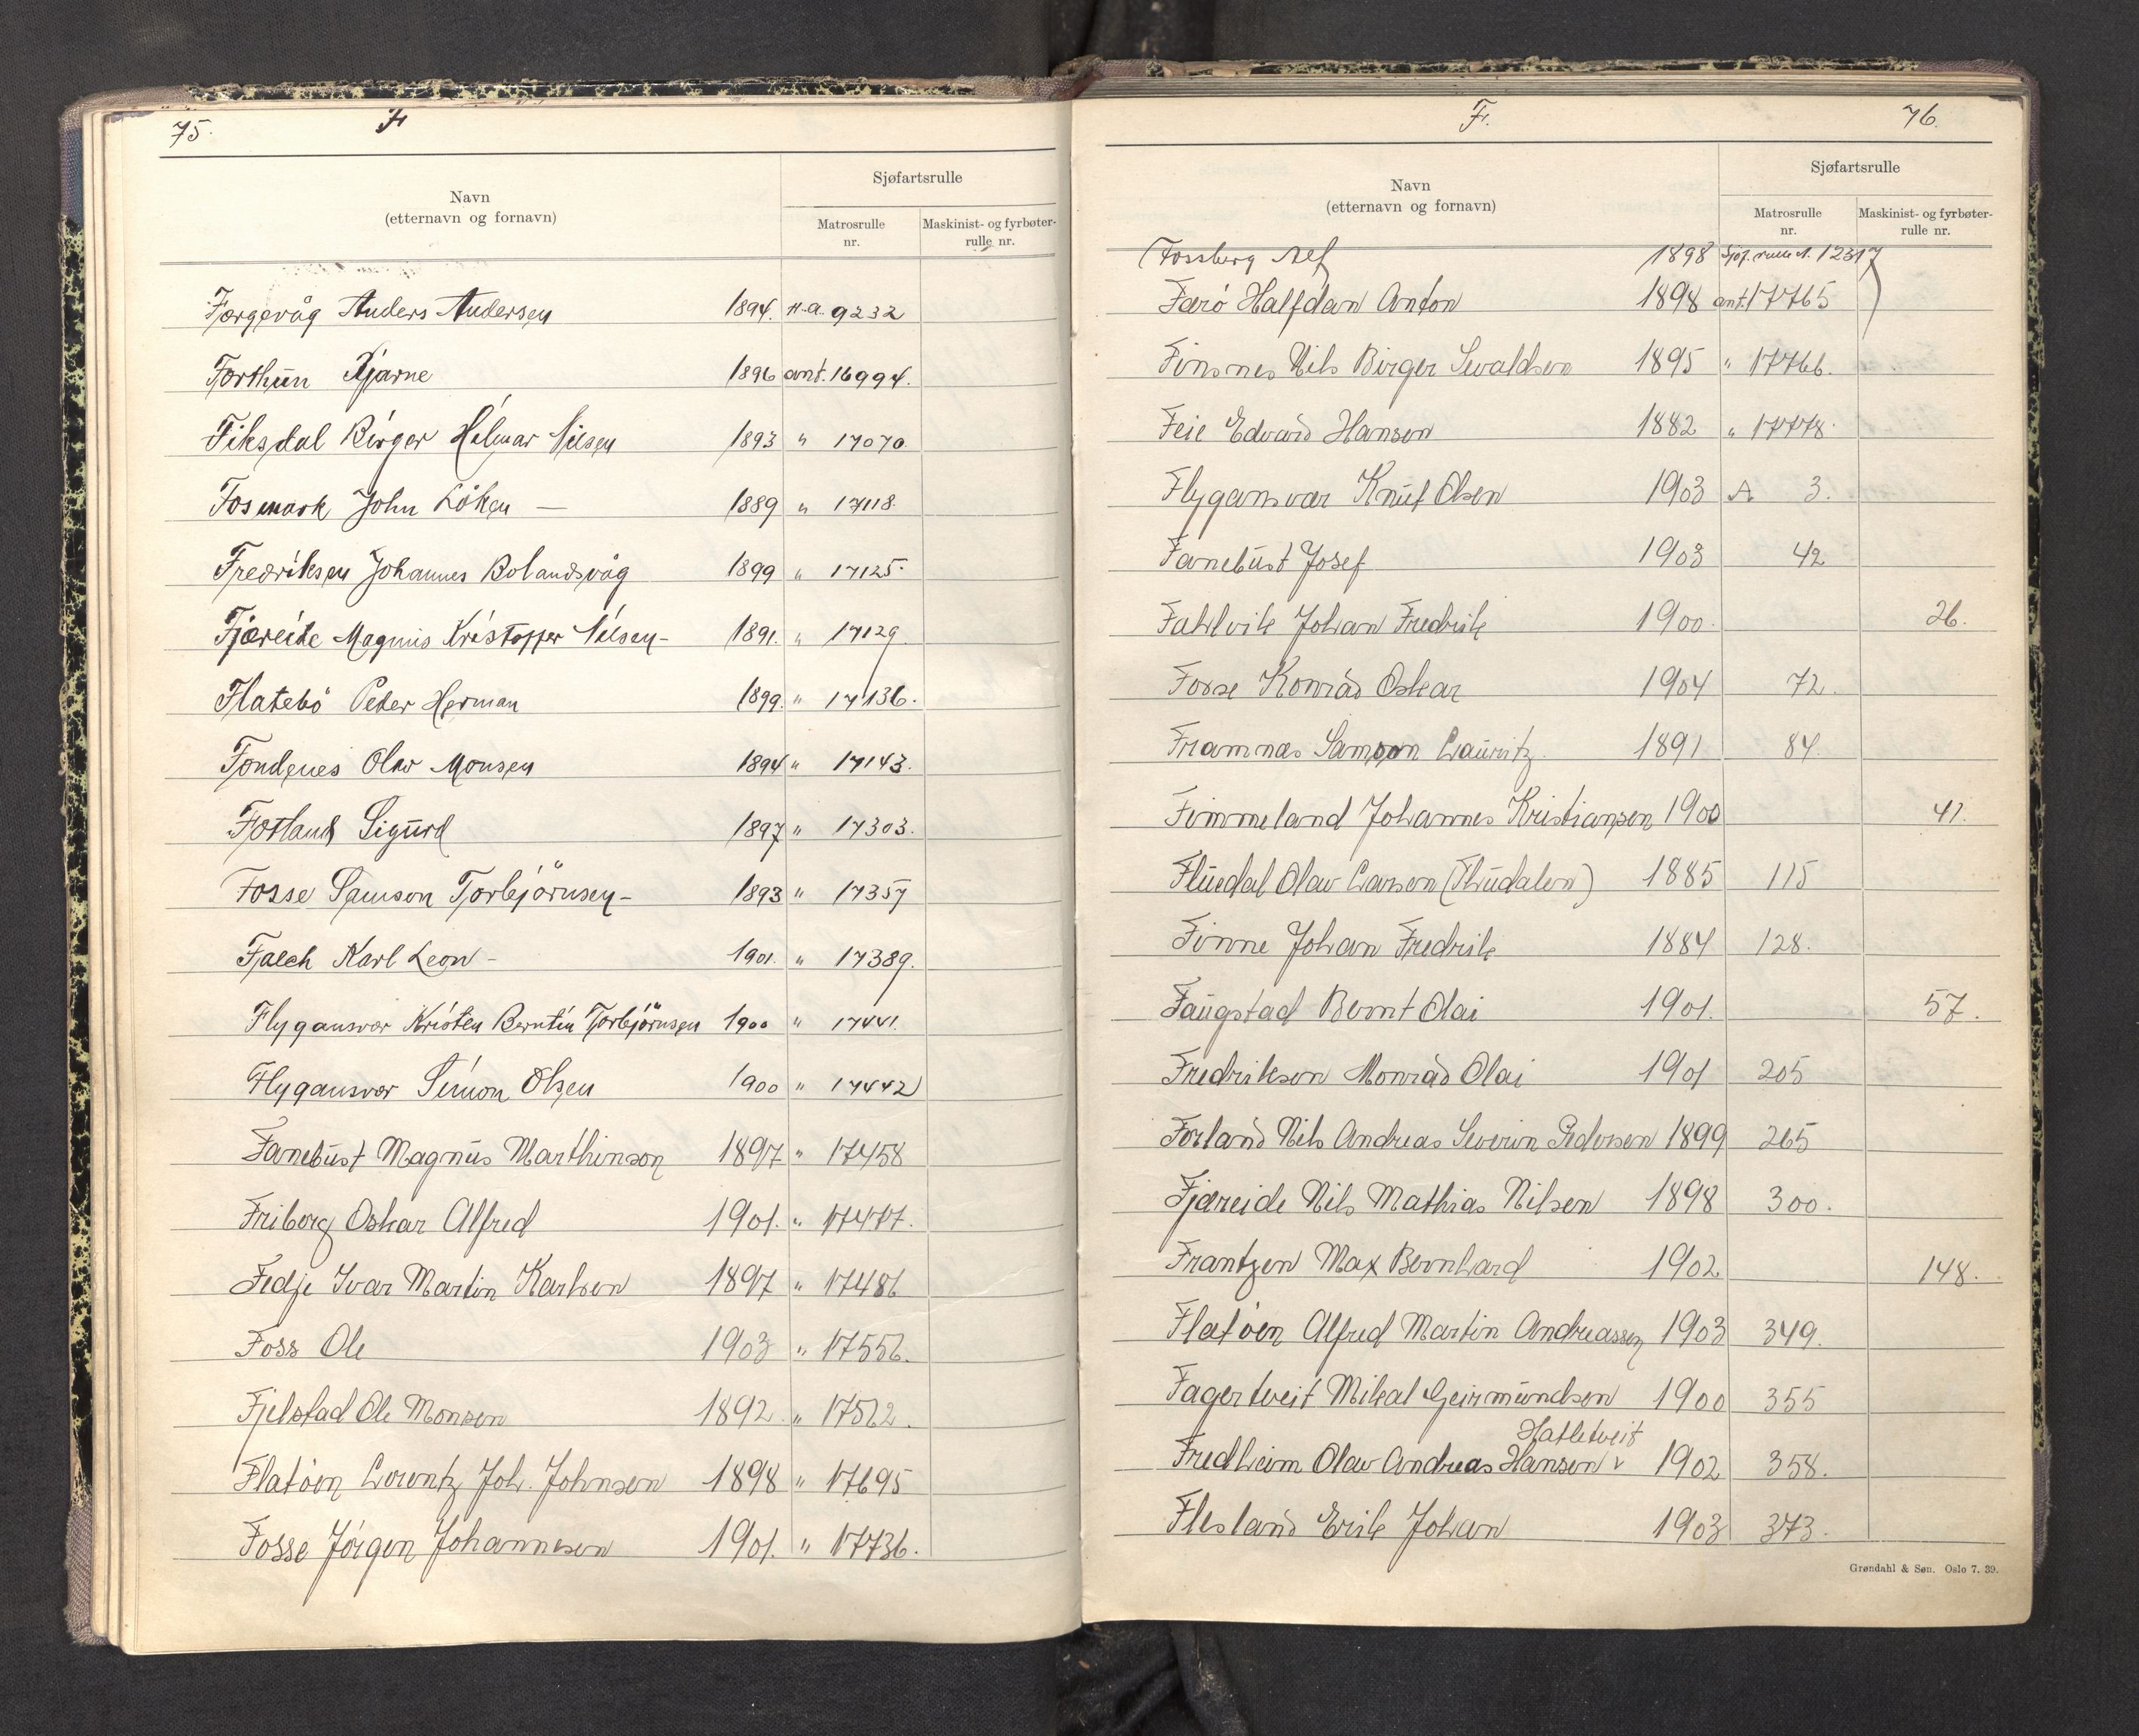 75.
F
Navn
(etternavn og fornavn)
Sjøfartsrulle
Matrosrulle
nr.
Maskinist- og fyrbøter-
rulle nr.
Færgevåg Anders Andersen 1894. H.a. 9232
Forthun Bjarne 1896 ant. 16994.
Fiksdal Birger Hilmar Nilsen 1893 " 17070
Fosmark John Löken — 1889 " 17118.
Fredriksen Johannes Bolandsvåg 1899 " 17125.
Fjæreide Magnus Kristoffer Nilsen - 1891. " 17129.
Flatebö Peter Herman 1899. " 17136.
Fondenes Olav Monsen 1894 " 17143.
Fotland Sigurd 1897 " 17303.
Fosse Samson Torbjörnsen - 1893 " 17357
Falch Karl Leon - 1901. " 17389.
Flygansvær Kristen Berntin Torbjörnsen 1900 " 17441.
Flygansvær Simon Olsen 1900 " 17442
Fanebust Magnus Marthinson 1897 " 17458
Friborg Oskar Alfred 1901. " 17477.
Fedje Ivar Martin Karlsen 1897 " 17486
Foss Ole 1903 " 17556.
Fjelstad Ole Monsen 1892. " 17562.
Flatöen Lorentz Joh. Johnsen 1898 " 17695
Fosse Jörgen Johannesen 1901. " 17736.
F.
76.
Navn
(etternavn og fornavn)
Sjøfartsrulle
Matrosrulle
nr.
Maskinist- og fyrbøter-
rulle nr.
(Fossberg Alf 1898 Sjøf. rulle A. 12317)
Færö Halfdan Anton 1898 ant. 17765
Finsnes Nils Birger Sevaldsen 1895 " 17766.
Feie Edvard Hansen 1882 " 17778.
Flygansvær Knut Olsen 1903 A 3.
Fanebust Josef 1903 42
Fahlvik Johan Fredrik 1900. 26.
Fosse Konrad Oskar 1904 72.
Framnæs Samson Lauritz. 1891 84.
Fimmeland Johannes Kristiansen 1900 41.
Fluedal Olav Larsen (Fludalen) 1885 115
Finne Johan Fredrik 1884 128.
Faugstad Bernt Olai 1901. 57.
Fredriksen Monrad Olai 1901 205
Forland Nils Andreas Severin Pedersen 1899 265
Fjæreide Nils Mathias Nilsen 1898 300.
Frantzen Max Bernhard 1902 148.
Flatöen Alfred Martin Andreassen 1903 349.
Fagertveit Mikal Geirmundsen 1900 355
Hatletveit
Fredheim Olav Andreas Hansen v 1902 358.
Flesland Erik Johan 1903 373.
Grøndahl & Søn. Oslo 7. 39.